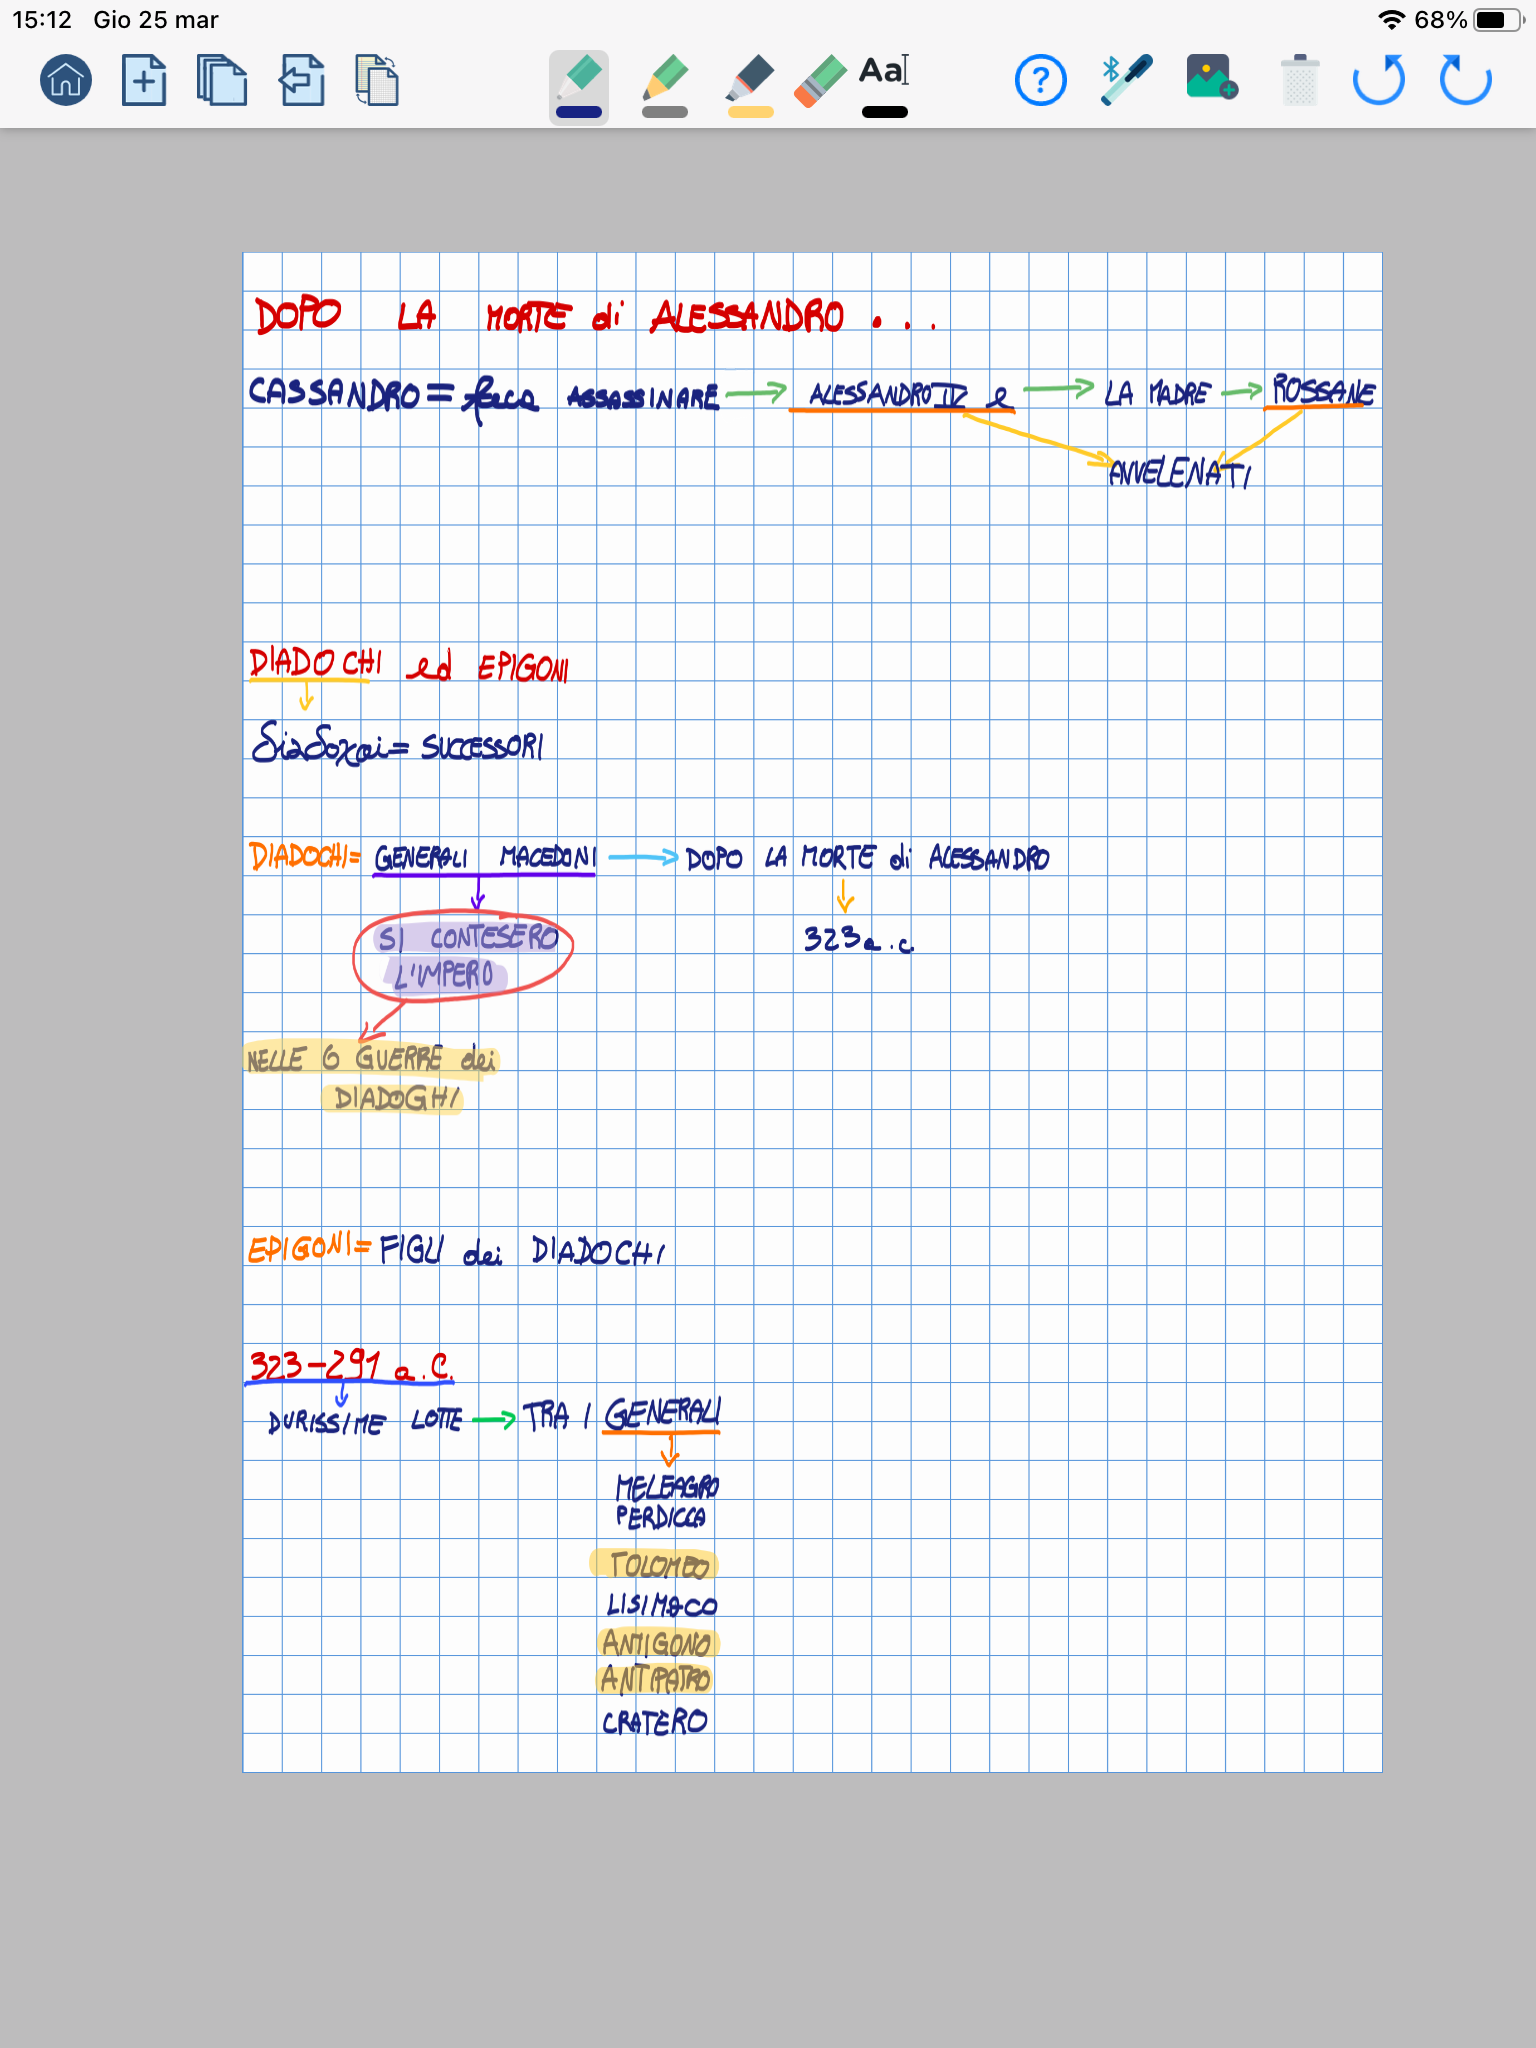 15:12 Gio 25 mar 68%
Aa
?
DOPO LA MORTE di ALESSANDRO...
CASSANDRO = fece ASSASSINARE → ALESSANDRO IV e → LA MADRE → ROSSANE
AVVELENATI
DIADOCHI ed EPIGONI
διαδοχαi = SUCCESSORI
DIADOCHI = GENERALI MACEDONI → DOPO LA MORTE di ALESSANDRO
SI CONTESERO 323 a.c.
L'IMPERO
NELLE 6 GUERRE dei
DIADOGHI
EPIGONI = FIGLI dei DIADOCHI
323-291 a.C.
DURISSIME LOTTE → TRA I GENERALI
MELEAGRO
PERDICCA
TOLOMEO
LISIMaCO
ANTIGONO
ANTIPATRO
CRATERO